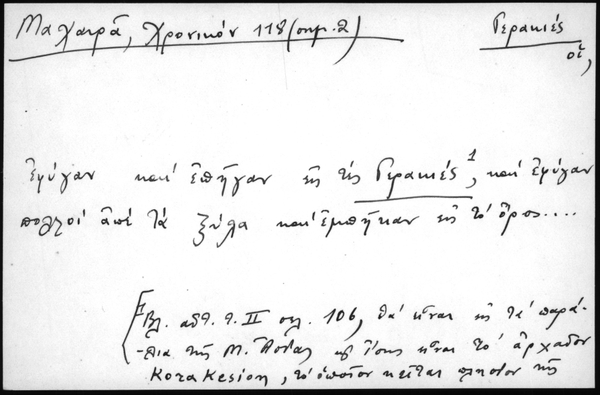 Μαχαιρᾶ, Χρονικόν 118 (σημ. 2)
Γερακιές
οἱ,
ἐφύγαν καὶ ἐπῆγαν εἰς τὶς Γερακιές¹, καὶ ἐφύγαν
πολλοὶ ἀπὲ τὰ ξύλα καὶ ἐμπῆκαν εἰς τὸ ὄρος....
[1 Βλ. αὐτ. τ. II σελ. 106, θὰ εἶναι εἰς τὰ παρά-
-λια τῆς Μ. Ἀσίας κ' ἴσως εἶναι τὸ ἀρχαῖον
Korakesion, τὸ ὁποῖον κεῖται πλησίον τῆς